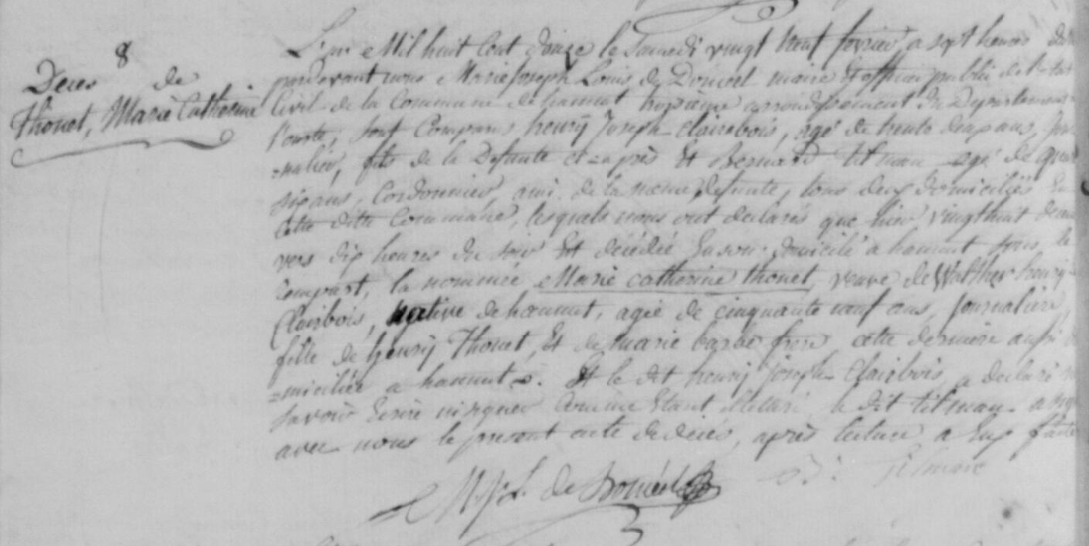 8
Deces de
Thonet, Marie Catherine
L'an Mil huit Cent douze le Samedi vingt neuf fevrier, a sept heures du
pardevant nous Marie Joseph Louis de Donceel maire et officier public de l'etat
Civil de la Commune de hannut, arrondissement du Departement
l'ourte, sont Comparus henry Joseph Clairebois, agé de trente deux ans, jour
=nalier, fils de la Defunte et Bernard tilman agé de quar
six ans, Cordonnier, ami de la meme defunte, tous deux domiciliés En
Cette ditte Commune, lesquels nous ont declarés que hier vingt huit
vers dix heures du soir Est décédée En son domicile a hannut
la nommée Marie Catherine thonet, veuve de Walther henry
Clairbois, native de hannut, agée de cinquante neuf ans, Journaliere
fille de henry Thonet, Et de marie barbe cette derniere aussi
=miciliée a hannut. Et le dit henry Joseph Clairbois a declaré
savoir Ecrire Comme Etant Illettré le dit tilman a
avec nous le present acte de deces, après lecture a Eux faite
M. J. L. de Donceel
B: Tilman